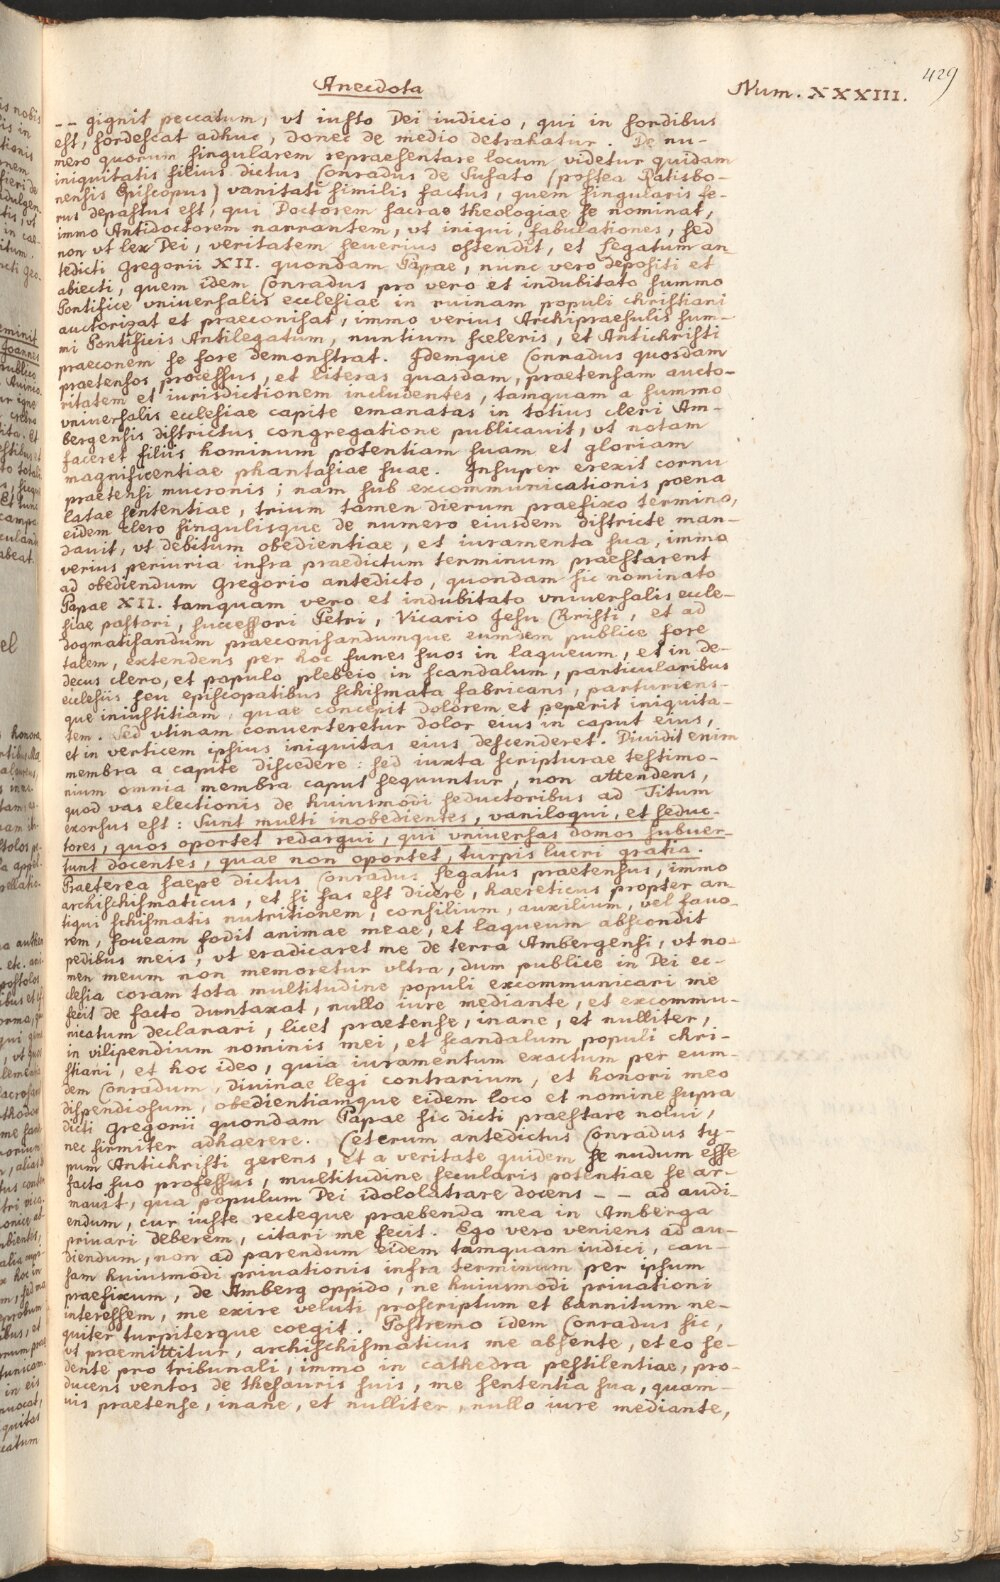 429
Anecdota
Num. XXXIII.
-- gignit peccatum, vt iusto Dei iudicio, qui in sordibus
est, sordescat adhuc, donec de medio detrahatur. De nu-
mero quorum singularem repraesentare locum videtur quidam
iniquitatis filius dictus Conradus de Susato (postea Ratisbo-
nensis Episcopus) vanitati similis factus, quem singularis fe-
rus depastus est, qui Doctorem sacrae theologiae se nominat,
immo Antidoctorem narrantem, vt iniqui, fabulationes, sed
non vt lex Dei, veritatem seuerius ostendit, et legatum an-
tedicti Gregorii XII. quondam Papae, nunc vero depositi et
abiecti, quem idem Conradus pro vero et indubitato summo
Pontifice vniuersalis ecclesiae in ruinam populi christiani
auctorizat et praeconisat, immo verius Archipraesulis sum-
mi Pontificis Antilegatum, nuntium sceleris, et Antichristi
praeconem se fore demonstrat. Idemque Conradus quosdam
praetensos processus, et literas quasdam, praetensam aucto-
ritatem et iurisdictionem includentes, tamquam a summo
vniuersalis ecclesiae capite emanatas in totius cleri Am-
bergensis districtus congregatione publicauit, vt notam
faceret filiis hominum potentiam suam et gloriam
magnificentiae phantasiae suae. Insuper erexit cornu
praetensi mucronis; nam sub excommunicationis poena
latae sententiae, trium tamen dierum praefixo termino,
eidem clero singulisque de numero eiusdem districte man-
dauit, vt debitum obedientiae, et iuramenta sua, immo
verius periuria infra praedictum terminum praestarent
ad obediendum Gregorio antedicto, quondam sic nominato
Papae XII. tamquam vero et indubitato vniuersalis eccle-
siae pastori, successori Petri, Vicario Jesu Christi, et ad
dogmatisandum praeconisandumque eumdem publice fore
talem, extendens per hoc funes suos in laqueum, et in de-
decus clero, et populo plebeio in scandalum, particularibus
ecclesiis seu episcopatibus schismata fabricans, parturiens-
que iniustitiam, quae concepit dolorem et peperit iniquita-
tem. Sed vtinam conuerteretur dolor eius in caput eius,
et in verticem ipsius iniquitas eius descenderet. Diuidit enim
membra a capite discedere: sed iuxta scripturae testimo-
nium omnia membra caput sequuntur, non attendens,
quod vas electionis de huiusmodi seductoribus ad Titum
exorsus est: Sunt multi inobedientes, vaniloqui, et seduc-
tores, quos oportet redargui, qui vniuersas domos subuer-
tunt docentes, quae non oportet, turpis lucri gratia.
Praeterea saepe dictus Conradus legatus praetensus, immo
archischismaticus, et si fas est dicere, haereticus propter an-
tiqui schismatis nutritionem, consilium, auxilium, vel fauo-
rem, foueam fodit animae meae, et laqueum abscondit
pedibus meis, vt eradicaret me de terra Ambergensi, vt no-
men meum non memoretur vltra, dum publice in Dei ec-
clesia coram tota multitudine populi excommunicari me
fecit de facto duntaxat, nullo iure mediante, et excommu-
nicatum declarari, licet praetense, inane, et nulliter,
in vilipendium nominis mei, et scandalum populi chri-
stiani, et hoc ideo, quia iuramentum exactum per eum-
dem Conradum, diuinae legi contrarium, et honori meo
dispendiosum, obedientiamque eidem loco et nomine supra
dicti Gregorii quondam Papae sic dicti praestare nolui,
nec firmiter adhaerere. Ceterum antedictus Conradus ty-
pum Antichristi gerens, et a veritate quidem se nudum esse
facto suo professus, multitudine secularis potentiae se ar-
mauit, qua populum Dei idololatrare docens -- ad audi-
endum, cur iuste recteque praebenda mea in Amberga
priuari deberem, citari me fecit. Ego vero veniens ad au-
diendum, non ad parendum eidem tamquam iudici, cau-
sam huiusmodi priuationis infra terminum per ipsum
praefixum, de Amberg oppido, ne huiusmodi priuationi
interessem, me exire veluti proscriptum et bannitum ne-
quiter turpiterque coegit. Postremo idem Conradus sic,
vt praemittitur, archischismaticus me absente, et eo se-
dente pro tribunali, immo in cathedra pestilentiae, pro-
ducens ventos de thesauris suis, me sententia sua, quam-
uis praetense, inane, et nulliter, nullo iure mediante,